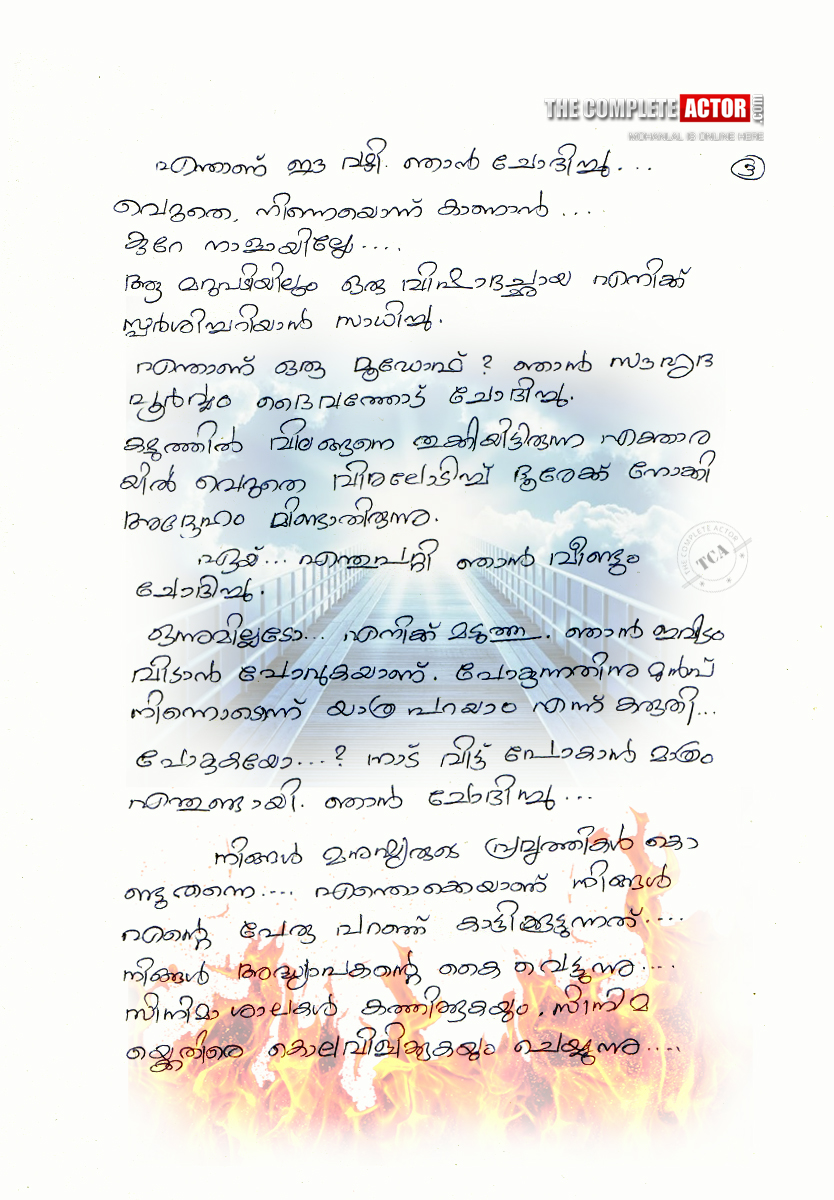 THE COMPLETE ACTOR .COM
MOHANLAL IS ONLINE HERE
എന്താണ് ഈ വഴി. ഞാൻ ചോദിച്ചു... ③
വെറുതെ, നിന്നെയൊന്ന് കാണാൻ ....
കുറേ നാളായില്ലേ....
ആ മറുപടിയിലും ഒരു വിഷാദച്ഛായ എനിക്ക്
സ്പർശിച്ചറിയാൻ സാധിച്ചു.
എന്താണ് ഒരു മൂഡോഫ് ? ഞാൻ സൗഹൃദ
പൂർവ്വം ദൈവത്തോട് ചോദിച്ചു.
കഴുത്തിൽ വിലങ്ങനെ തൂക്കിയിട്ടിരുന്ന എക്താര
യിൽ വെറുതെ വിരലോടിച്ച് ദൂരേക്ക് നോക്കി
അദ്ദേഹം മിണ്ടാതിരുന്നു.
ഏയ്... എന്തുപറ്റി ഞാൻ വീണ്ടും
ചോദിച്ചു.
ഒന്നുമില്ലടോ... എനിക്ക് മടുത്തു. ഞാൻ ഇവിടം
വിടാൻ പോവുകയാണ്. പോകുന്നതിനു മുൻപ്
നിന്നൊടൊന്ന് യാത്ര പറയാം എന്ന് കരുതി...
പോകുകയോ...? നാട് വിട്ട് പോകാൻ മാത്രം
എന്തുണ്ടായി. ഞാൻ ചോദിച്ചു...
നിങ്ങൾ മനുഷ്യരുടെ പ്രവൃത്തികൾ കൊ
ണ്ടുതന്നെ.... എന്തൊക്കെയാണ് നിങ്ങൾ
എന്റെ പേരു പറഞ്ഞ് കാട്ടിക്കൂട്ടുന്നത്....
നിങ്ങൾ അദ്ധ്യാപകന്റെ കൈ വെട്ടുന്നു....
സിനിമാ ശാലകൾ കത്തിക്കുകയും, സിനിമ
യ്ക്കെതിരെ കൊലവിളിക്കുകയും ചെയ്യുന്നു....
THE COMPLETE ACTOR
TCA